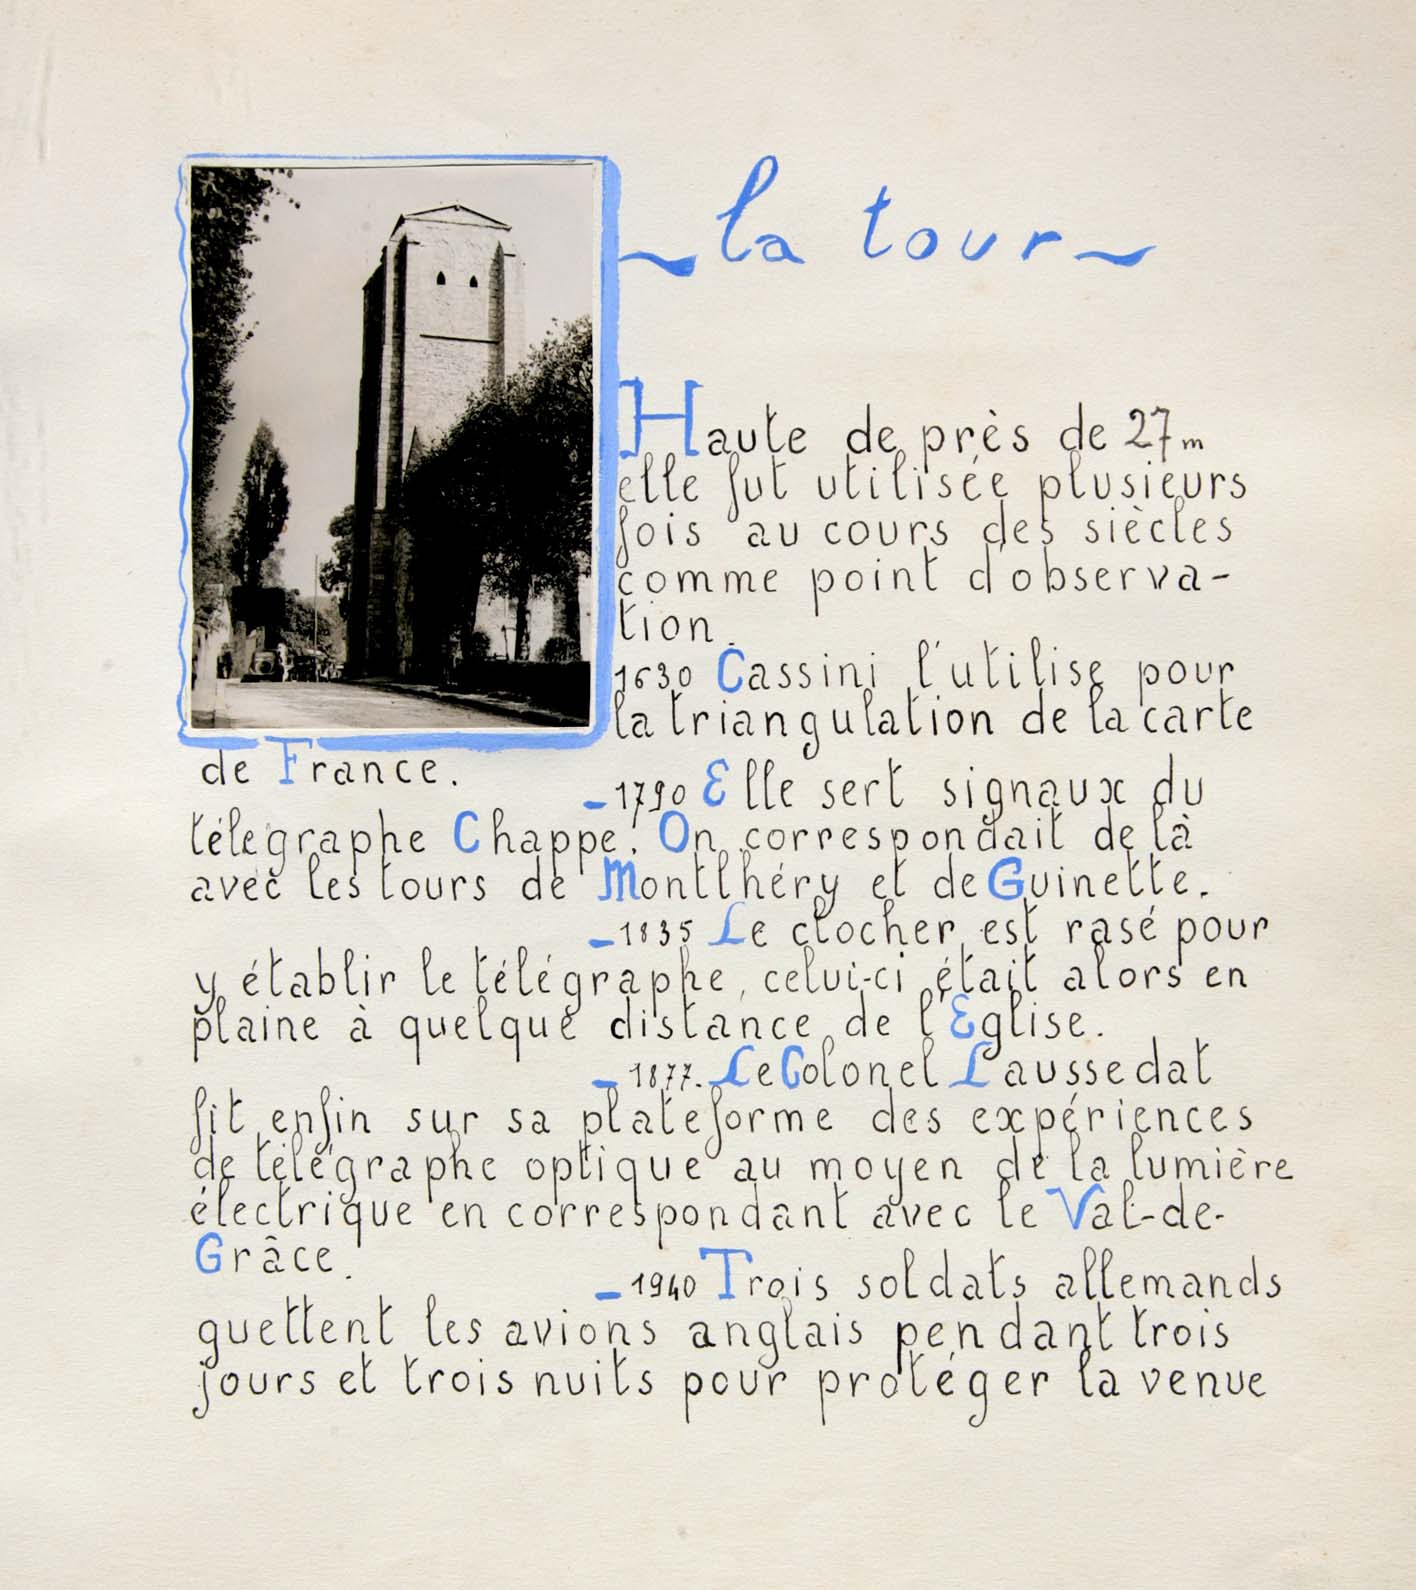 ~ la tour ~
Haute de près de 27m
elle fut utilisée plusieurs
fois au cours des siècles
comme point d'observa-
tion.
1630 Cassini l'utilise pour
la triangulation de la carte
de France.
_1790 Elle sert signaux du
télégraphe Chappe. On correspondait de là
avec les tours de Montlhéry et de Guinette.
_1835 Le clocher est rasé pour
y établir le télégraphe, celui-ci était alors en
plaine à quelque distance de l'Eglise.
_1877. Le Colonel Laussedat
fit enfin sur sa plateforme des expériences
de télégraphe optique au moyen de la lumière
électrique en correspondant avec le Val-de-
Grâce.
_1940 Trois soldats allemands
guettent les avions anglais pendant trois
jours et trois nuits pour protéger la venue